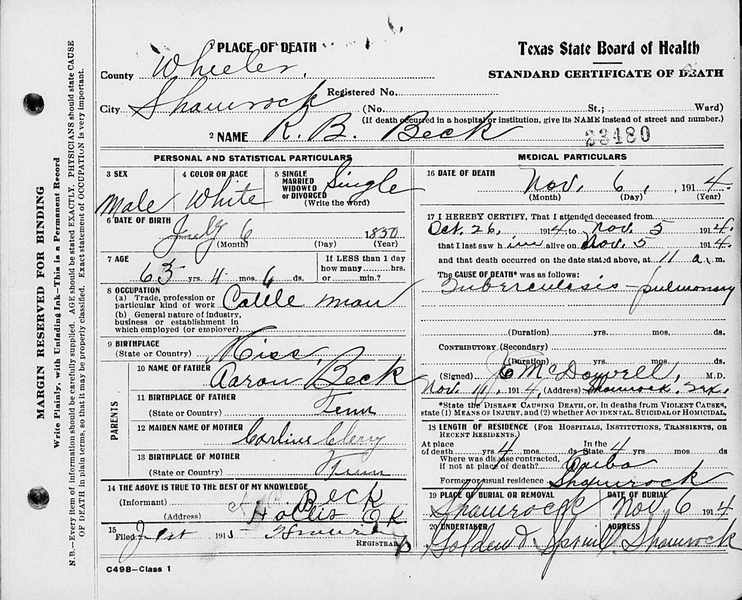 PLACE OF DEATH
Texas State Board of Health
STANDARD CERTIFICATE OF DEATH
County Wheeler.
Registered No.
City Shamrock (No. St.; Ward)
(If death occurred in a hospital or institution, give its NAME instead of street and number.)
2 NAME R. B. Beck 23480
PERSONAL AND STATISTICAL PARTICULARS
3 SEX Male
4 COLOR OR RACE White
5 SINGLE MARRIED WIDOWED or DIVORCED (Write the word) Single
6 DATE OF BIRTH July 6 1850
(Month) (Day) (Year)
7 AGE 63 yrs. 4 mos. 6 ds.
If LESS than 1 day
how many hrs.
or min.
8 OCCUPATION
(a) Trade, profession or
particular kind of work Cattle man
(b) General nature of industry,
business or establishment in
which employed (or employer)
9 BIRTHPLACE
(State or Country) Miss,
PARENTS
10 NAME OF FATHER Aaron Beck
11 BIRTHPLACE OF FATHER
(State or Country) Tenn
12 MAIDEN NAME OF MOTHER
13 BIRTHPLACE OF MOTHER
(State or Country) Tenn
14 THE ABOVE IS TRUE TO THE BEST OF MY KNOWLEDGE
(Informant) Beck
(Address) Hollis Ok
15
Filed 191
REGISTRAR
C498-Class 1
MEDICAL PARTICULARS
16 DATE OF DEATH Nov. 6, 1914.
(Month) (Day) (Year)
17 I HEREBY CERTIFY, That I attended deceased from
Oct. 26, 1914 to Nov. 5 1914
that I last saw him alive on Nov. 5 1914
and that death occurred on the date stated above, at 11 a m.
The CAUSE OF DEATH* was as follows:
Tuberculosis - pulmonary
(Duration) yrs. mos. ds
CONTRIBUTORY (Secondary)
(Duration) yrs. mos. ds
(Signed) McDowell, M.D.
Nov. 1914, (Address) Shamrock, Tex.
*State the DISEASE CAUSING DEATH, or, in deaths from VIOLENT CAUSES,
state (1) MEANS OF INJURY, and (2) whether ACCIDENTAL SUICIDAL or HOMICIDAL.
18 LENGTH OF RESIDENCE (FOR HOSPITALS, INSTITUTIONS, TRANSIENTS, OR
RECENT RESIDENTS.)
At place of death yrs. 4 mos. ds. In the State 4 yrs. mos. ds.
Where was disease contracted,
if not at place of death? Cuba
Former or usual residence Shamrock
19 PLACE OF BURIAL OR REMOVAL Shamrock
DATE OF BURIAL Nov 6 1914
20 UNDERTAKER
ADDRESS Shamrock
MARGIN RESERVED FOR BINDING
Write Plainly, with Unfading Ink—This is a Permanent Record
N.B.—Every item of information should be carefully supplied. AGE should be stated EXACTLY. PHYSICIANS should state CAUSE
OF DEATH in plain terms, so that it may be properly classified. Exact statement of OCCUPATION is very important.